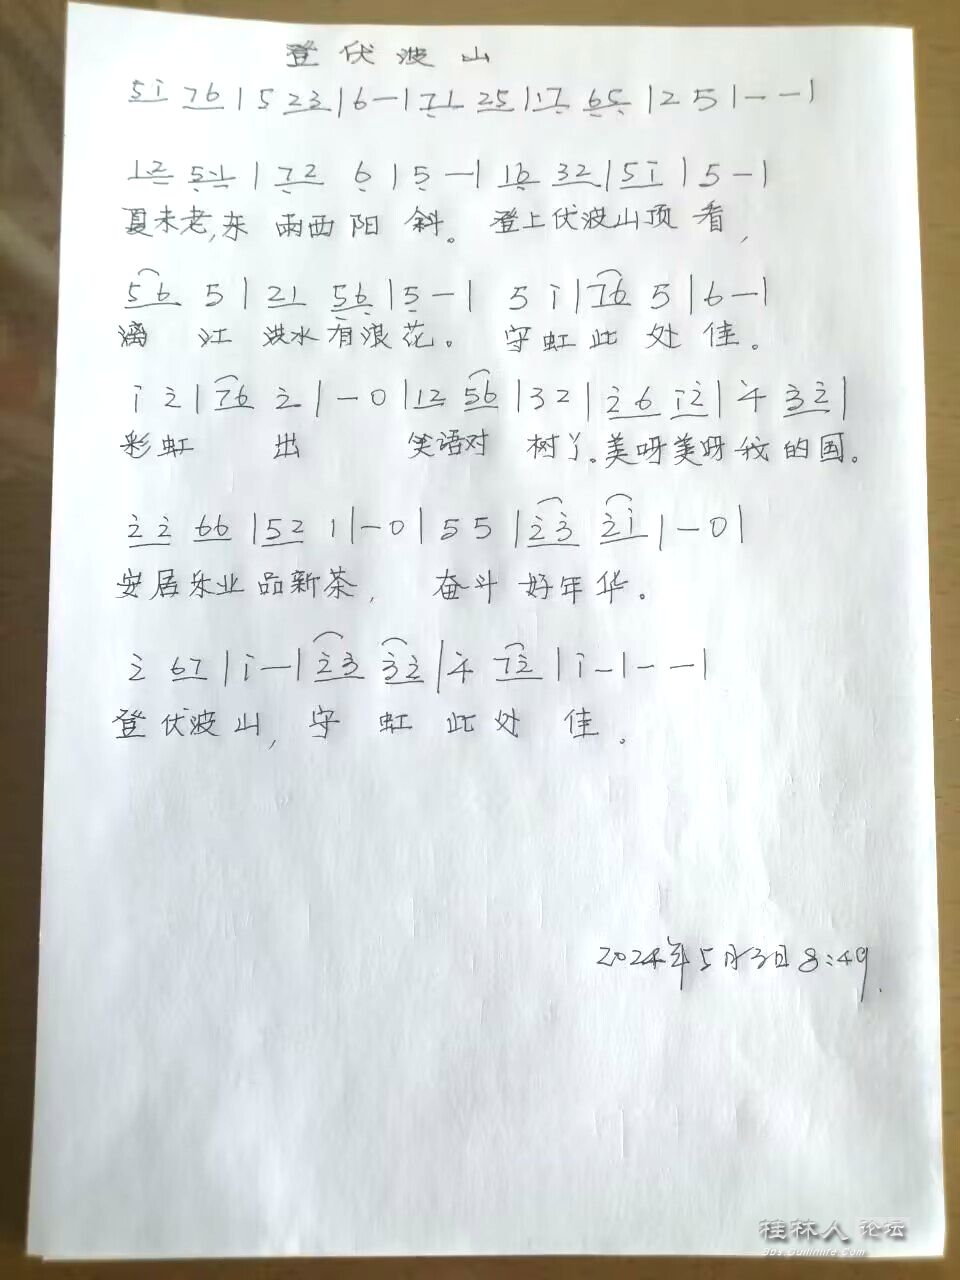 登伏波山
5i 76 | 5 23 | 6 - | 71 25 | 17 65 | 2 5 | - - |
12 51 | 72 6 | 5 - | 16 32 | 5i | 5 - |
夏未老,东雨西阳斜。登上伏波山顶看,
56 5 | 21 56 | 5 - | 5 i | 76 5 | 6 - |
漓江洪水有浪花。守虹此处佳。
i 2̇ | 76 2̇ | - 0 | 12 56 | 32 | 2̇6 i2̇ | 4̇ 3̇2̇ |
彩虹出 笑语对树丫。美呀美呀我的国。
2̇2̇ 66 | 52 1 | - 0 | 5 5 | 2̇3̇ 2̇i | - 0 |
安居乐业品新茶, 奋斗好年华。
2̇ 67 | i - | 2̇3̇ 3̇2̇ | 4̇ 72̇ | i - | - - |
登伏波山,守虹此处佳。
2024年5月3日8:49.
桂林人论坛
bbs.Guilinlife.Com